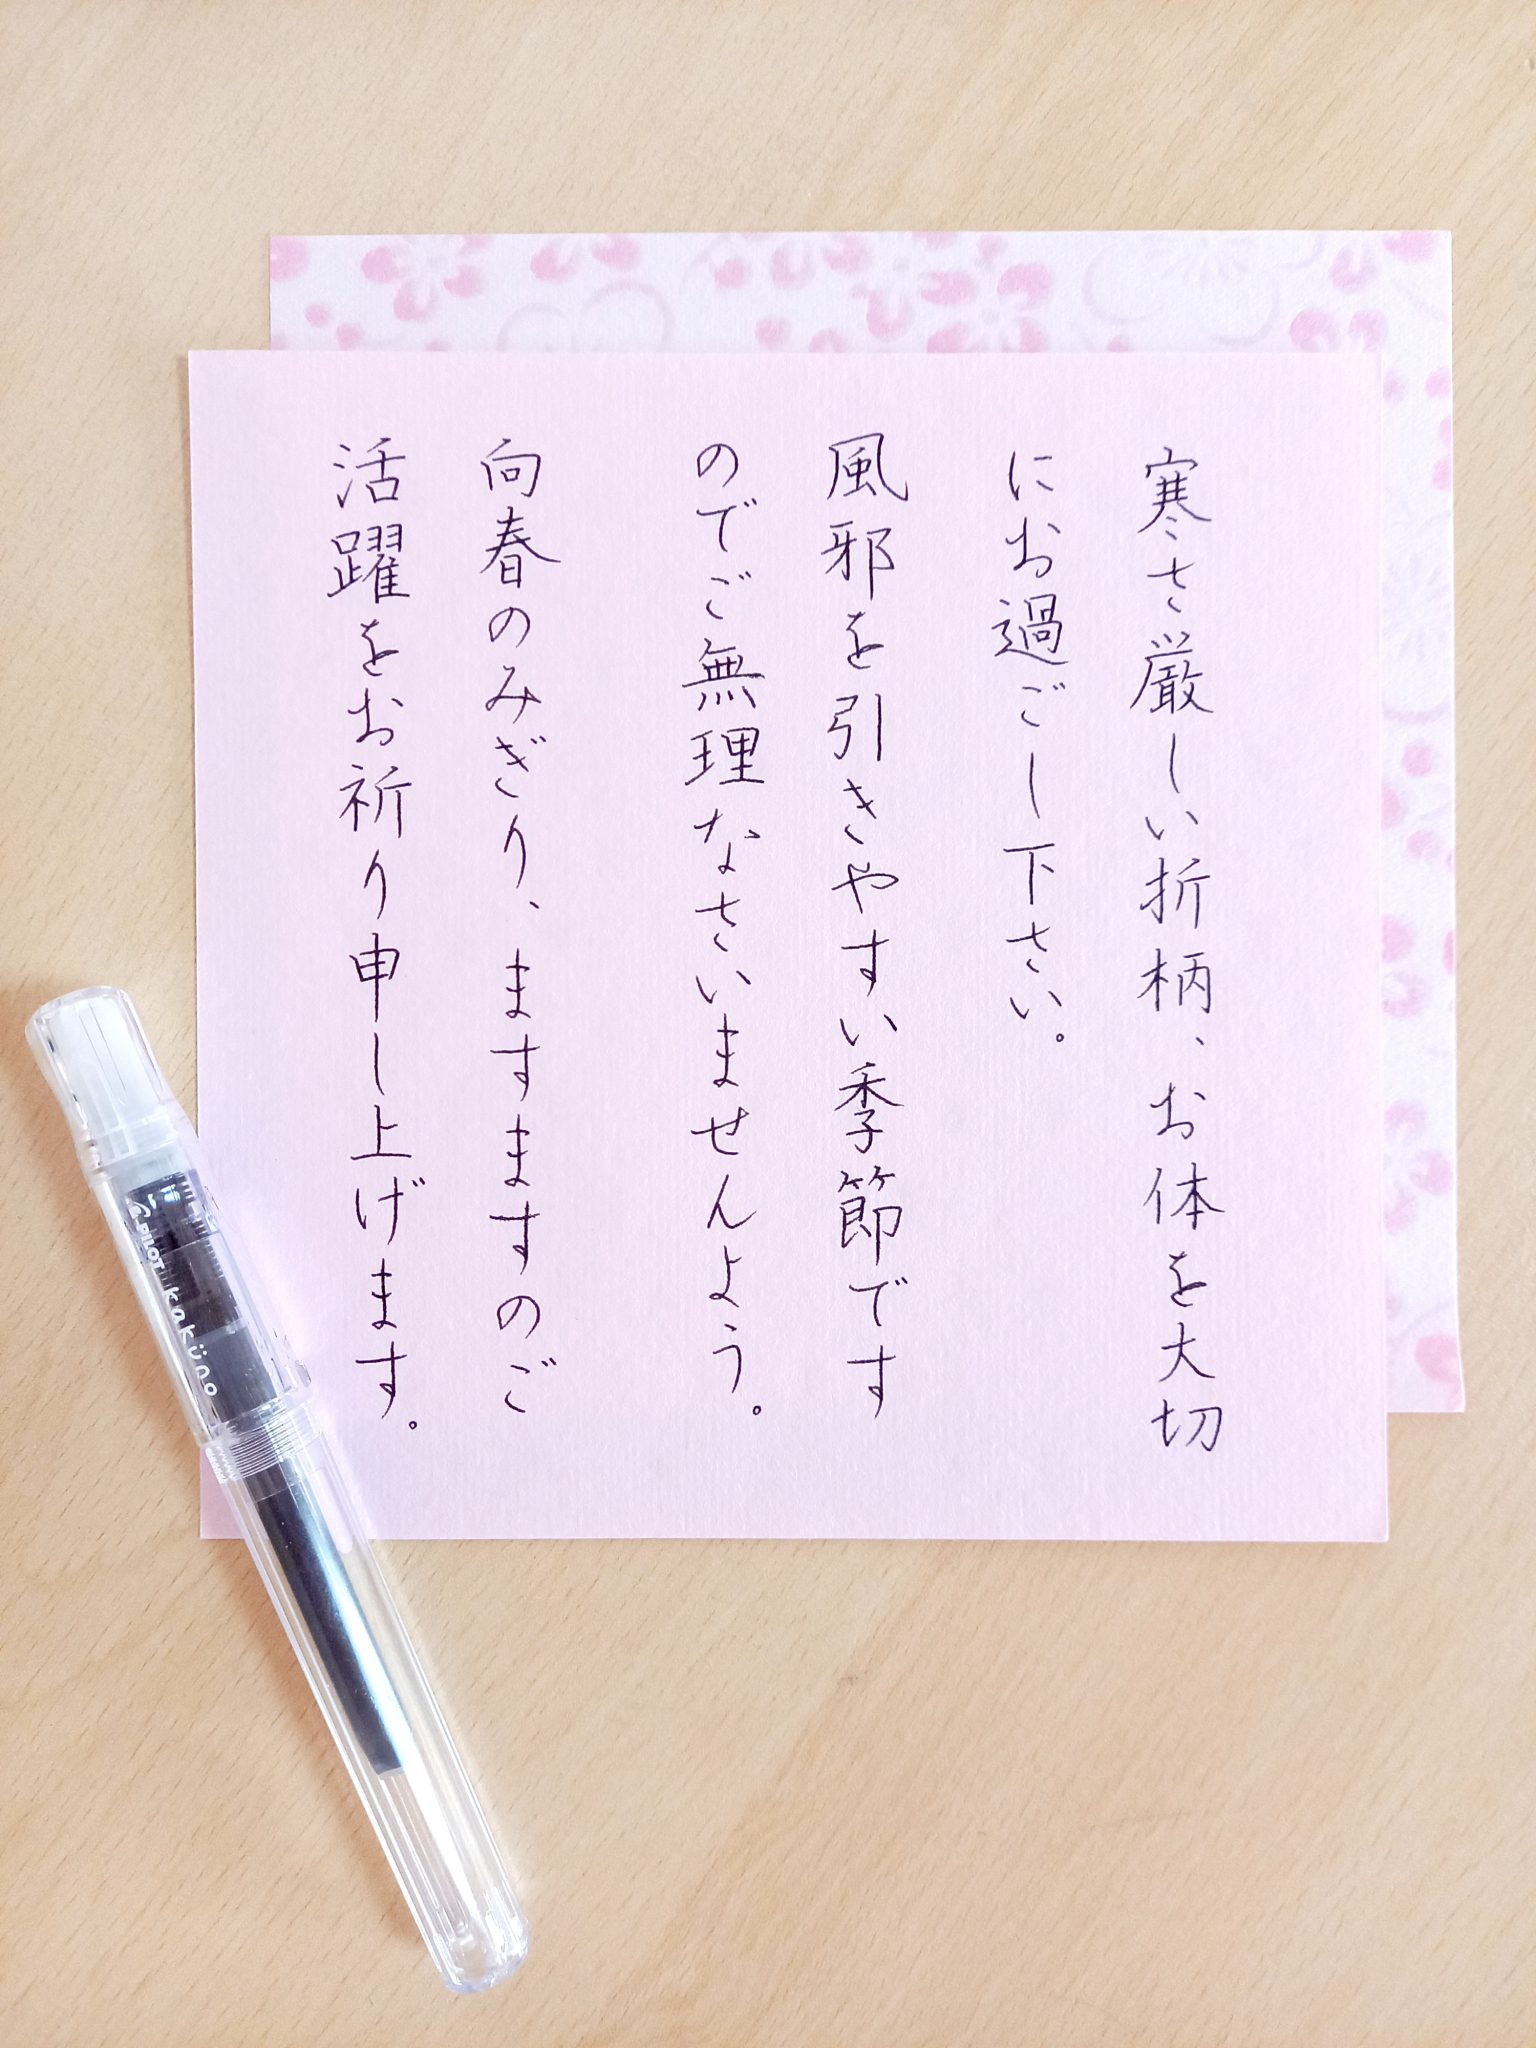 寒さ厳しい折柄、お体を大切
にお過ごし下さい。
風邪を引きやすい季節です
のでご無理なさいませんよう。
向春のみぎり、ますますのご
活躍をお祈り申し上げます。
PILOT kaküno